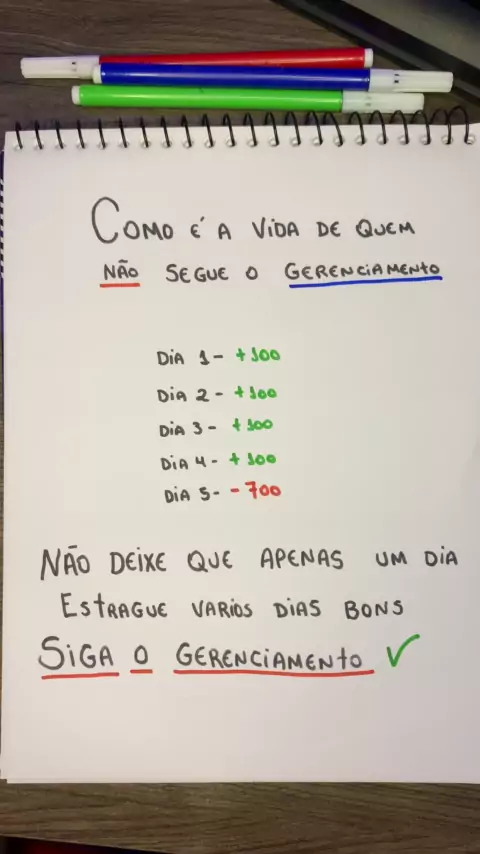 COMO É A VIDA DE QUEM
NÃO SEGUE O GERENCIAMENTO
DIA 1- +100
DIA 2- +100
DIA 3- +100
DIA 4- +100
DIA 5- -700
NÃO DEIXE QUE APENAS UM DIA
ESTRAGUE VARIOS DIAS BONS
SIGA O GERENCIAMENTO ✓